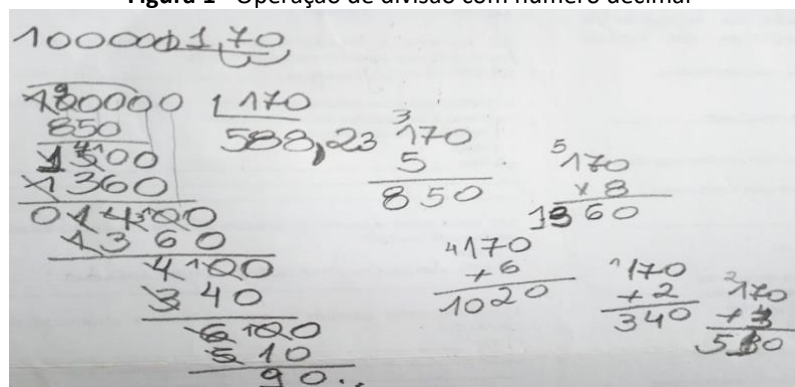 Figura 1 - Operação de divisão com número decimal
100000 170
100000 170
850 588,23
1500
1360
01400
1360
400
340
600
510
90..
3
170
5
850
5
170
x 8
1360
4
170
+ 6
1020
1
170
+ 2
340
2
170
+ 3
510